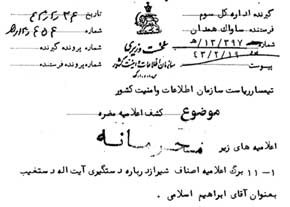 گیرنده اداره کل سوم
فرستنده ساواک همدان
شماره ۱۳/۳۹۷/ه
۴۳/۲/۱۹
پیوست
نخست وزیری
سازمان اطلاعات و امنیت کشور
تاریخ
شماره
شماره پرونده گیرنده
شماره پرونده فرستنده
تیمسار ریاست سازمان اطلاعات و امنیت کشور
موضوع کشف اعلامیه مضره
محرمانه
اعلامیه های زیر
۱- ۱۱ برگ اعلامیه اصناف شیراز درباره دستگیری آیت اله دستغیب
بعنوان آقای ابراهیم اسلامی .